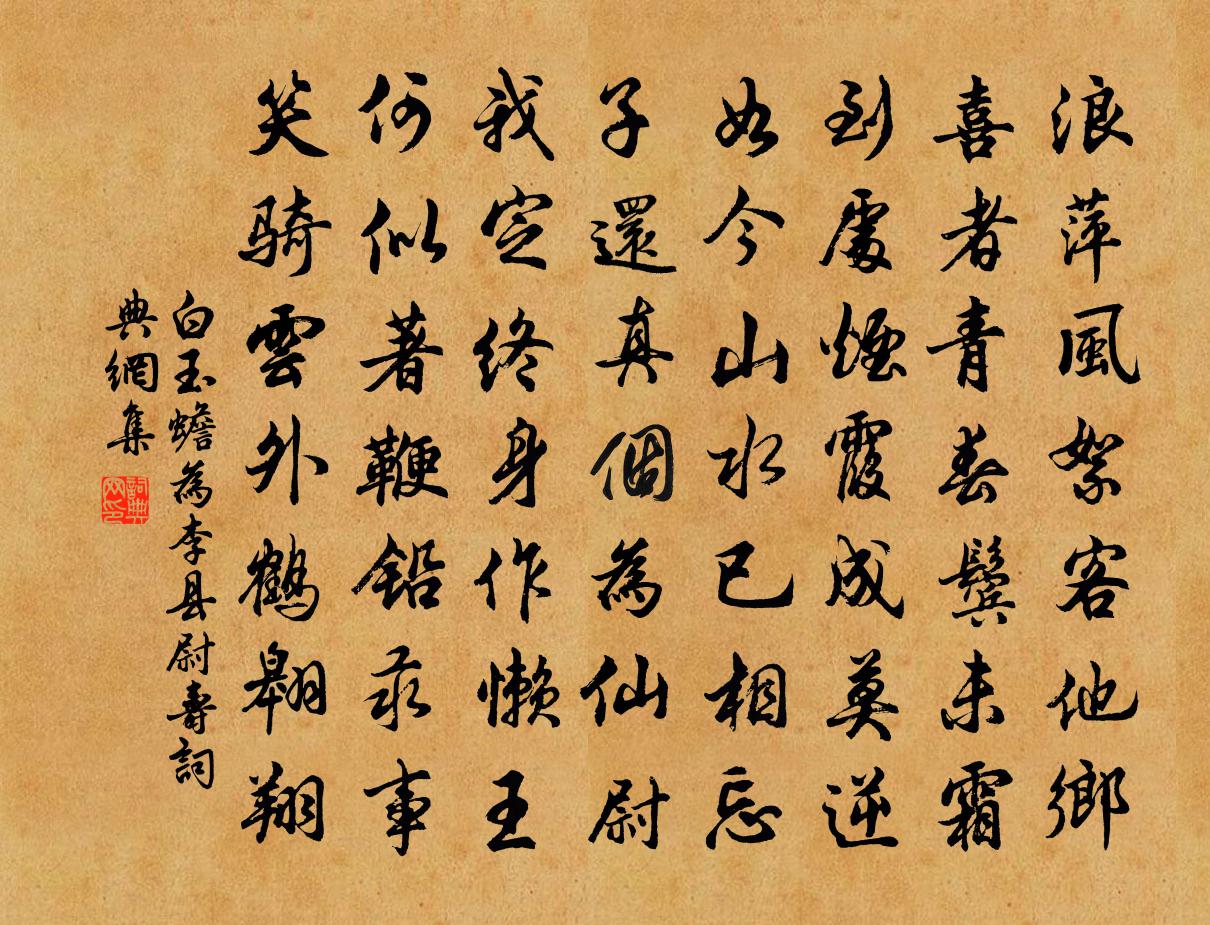 浪萍風絮客他鄉
喜者青春鬢未霜
到處煙霞成莫逆
如今山水已相忘
子還真個為仙尉
我定終身作懶王
何似著鞭鉛汞事
笑騎雲外鶴翺翔
白玉蟾為李县尉壽詞
典網集
詞典網印